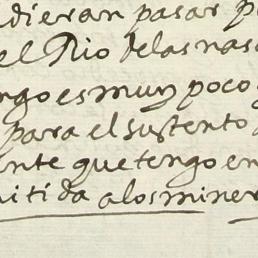 dieran pasar p
el Rio delas nas
ngo es muy poco
para el sustento
nte que tengo en
itida alos miner